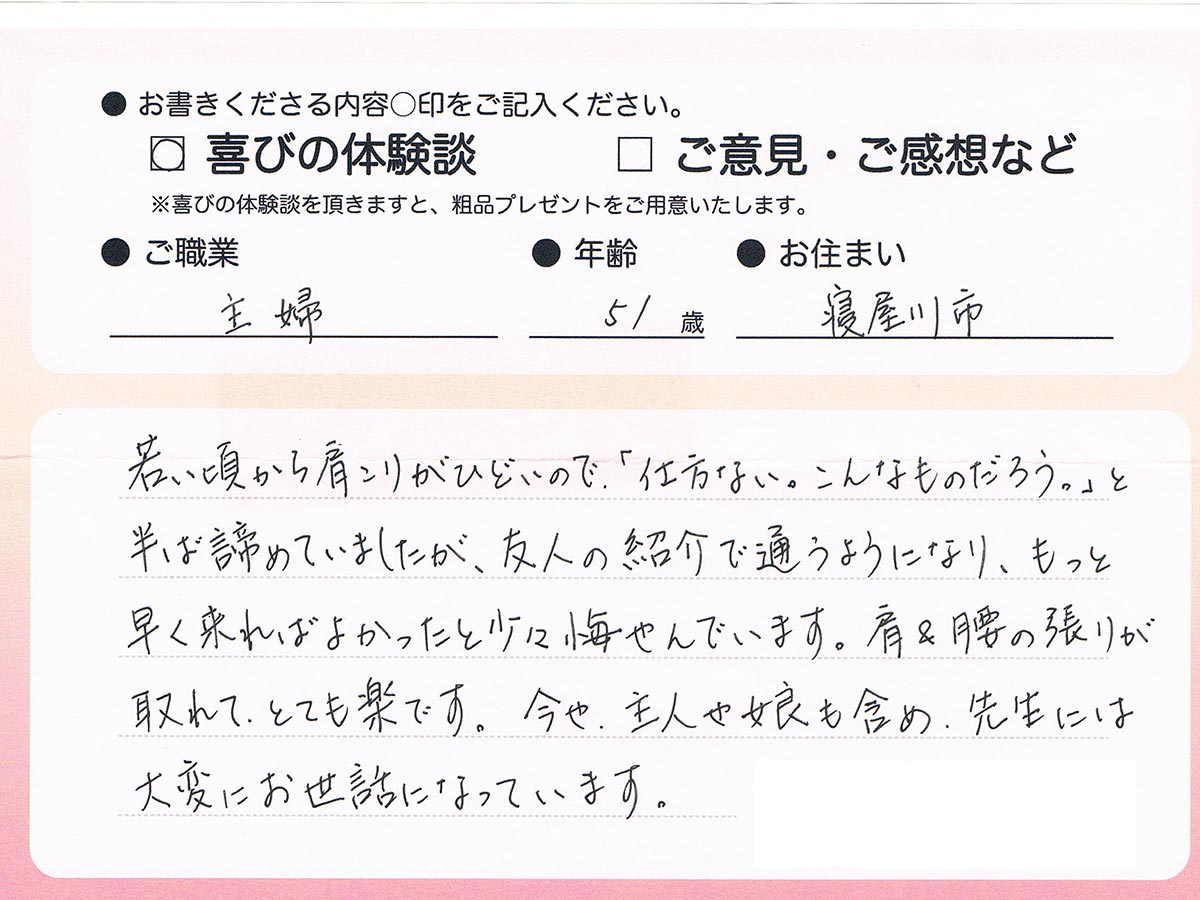 ● お書きくださる内容○印をご記入ください。
☐ 喜びの体験談 □ ご意見・ご感想など
※喜びの体験談を頂きますと、粗品プレゼントをご用意いたします。
● ご職業 ● 年齢 ● お住まい
主婦 51 歳 寝屋川市
若い頃から肩こりがひどいので、「仕方ない。こんなものだろう。」と
半ば諦めていましたが、友人の紹介で通うようになり、もっと
早く来ればよかったと少々悔やんでいます。肩&腰の張りが
取れて、とても楽です。今や、主人や娘も含め、先生には
大変にお世話になっています。